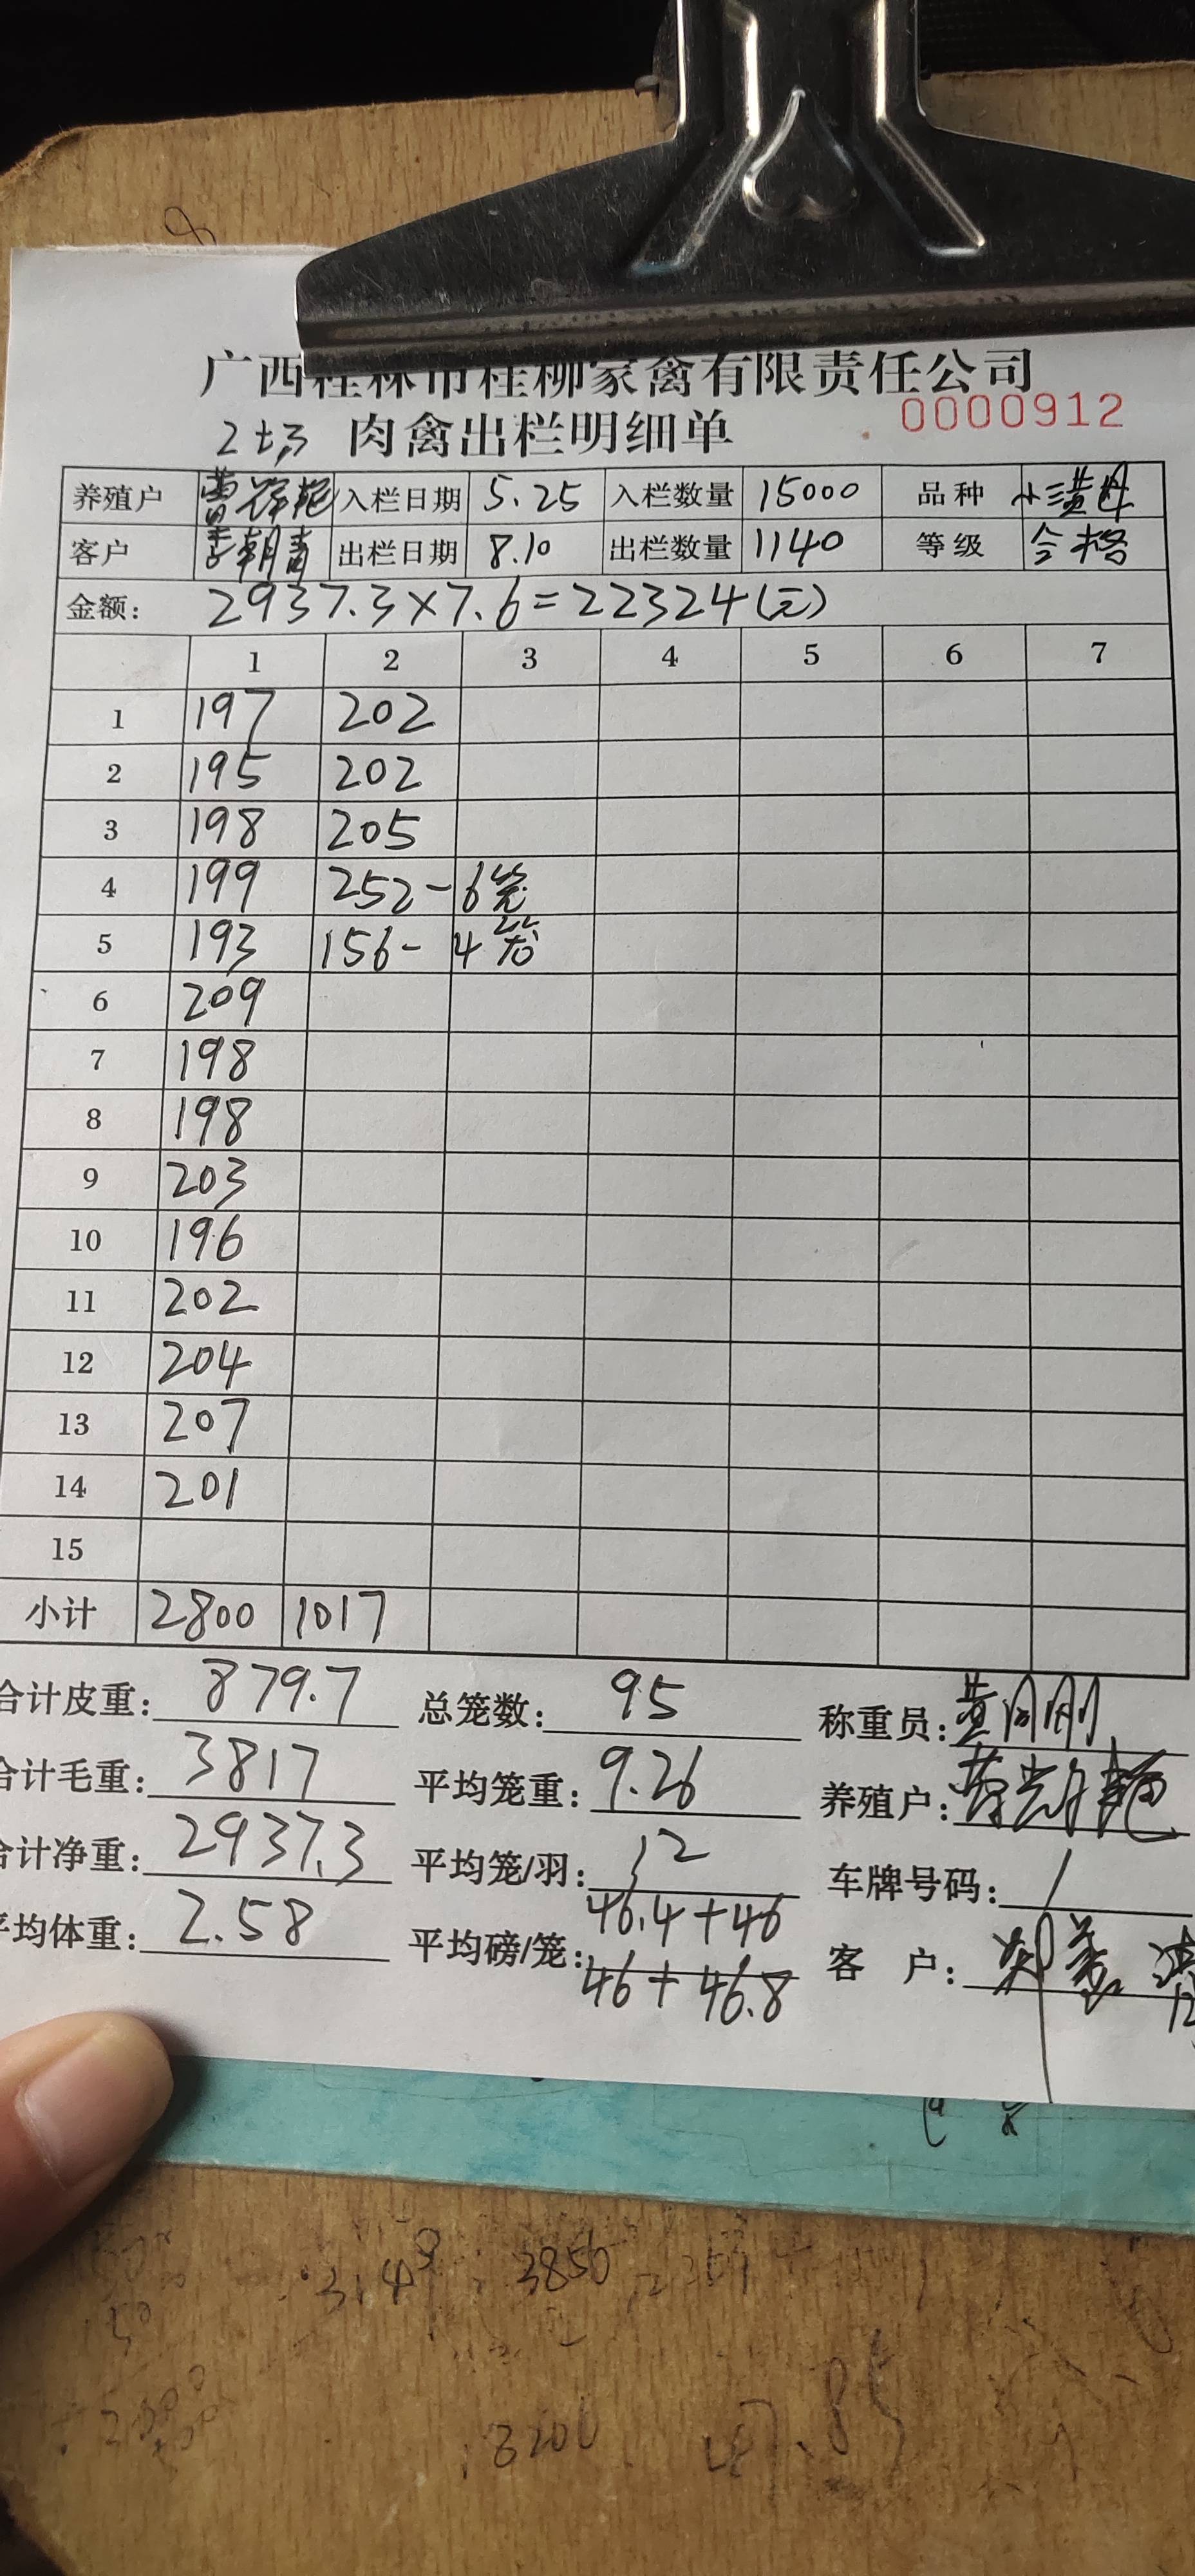 广西桂林市桂柳家禽有限责任公司
肉禽出栏明细单 0000912
养殖户 入栏日期 5.25 入栏数量 15000 品种
客户 李朝青 出栏日期 8.10 出栏数量 1140 等级 合格
金额: 2937.3×7.6=22324(元)
1 2 3 4 5 6 7
1 197 202
2 195 202
3 198 205
4 199 252-6笼
5 193 156-4笼
6 209
7 198
8 198
9 203
10 196
11 202
12 204
13 207
14 201
15
小计 2800 1017
合计皮重: 879.7 总笼数: 95 称重员:
合计毛重: 3817 平均笼重: 9.26 养殖户:
合计净重: 2937.3 平均笼/羽: 12 车牌号码: /
平均体重: 2.58 平均磅/笼: 46.4+46 客 户:
46+46.8
3850
3200